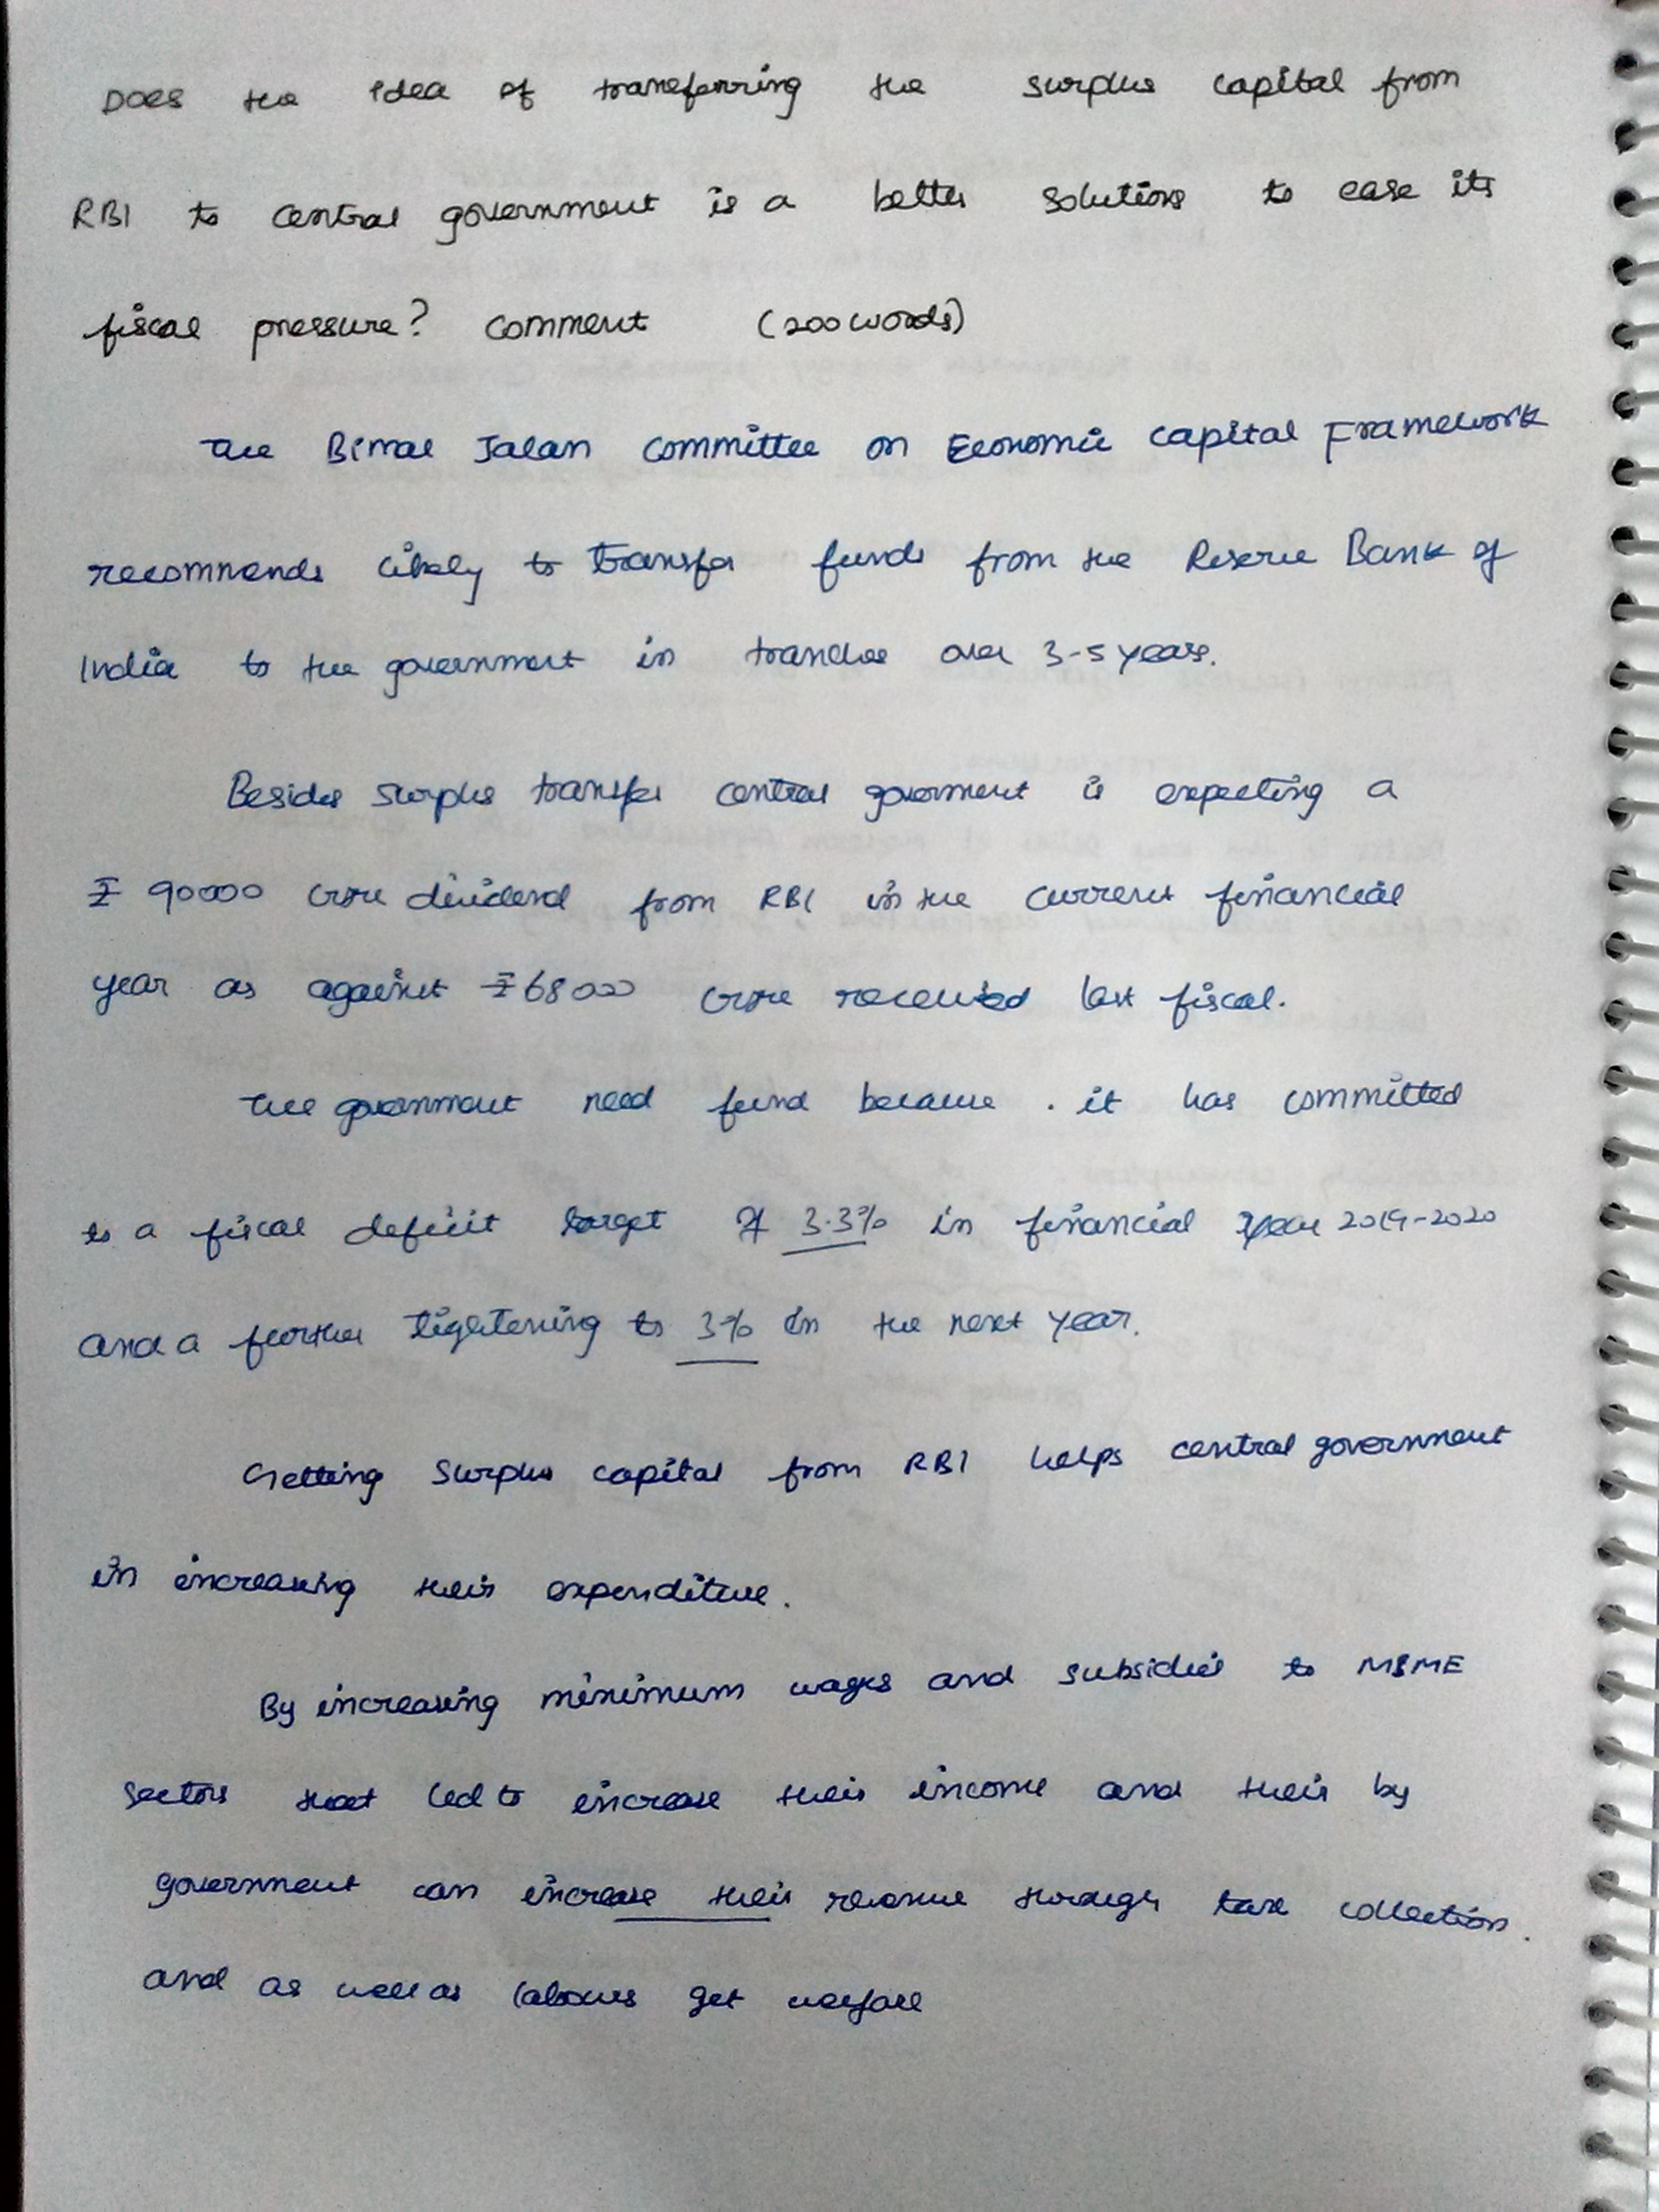 Does the idea of transferring the surplus capital from
RBI to central government is a better solutions to ease its
fiscal pressure? comment (200 words)
The Bimal Jalan committee on Economic capital Framework
recommends likely to transfer funds from the Reserve Bank of
India to the government in tranches over 3-5 years.
Besides surplus transfer central goverment is expecting a
₹ 90000 crore dividend from RBI in the current financial
year as against ₹ 68000 crore received last fiscal.
The government need fund because. it has committed
to a fiscal deficit target of 3.3% in financial year 2019-2020
and a further tightening to 3% in the next year.
Getting surplus capital from RBI helps central government
in increasing their expenditure.
By increasing minimum wages and subsidies to MSME
sectors that led to increase their income and their by
government can increase their revenue through tax collection.
and as well as labours get welfare